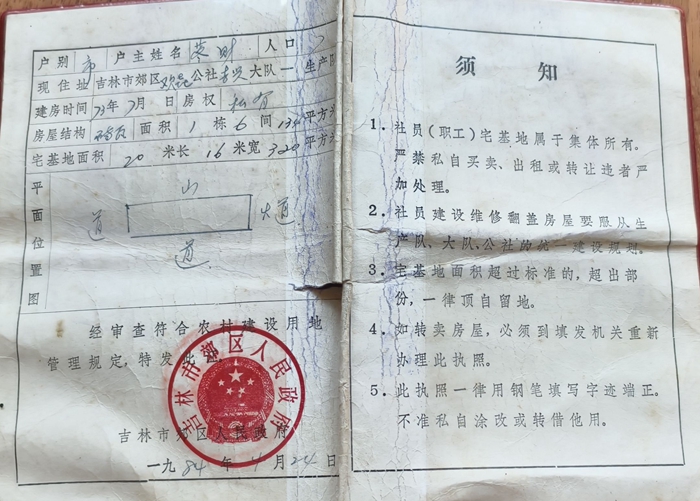 户别 市 户主姓名 人口
现住址 吉林市郊区 公社 大队 一 生产队
建房时间 73年7月 日 房权 私有
房屋结构 砖瓦 面积 1 栋 6 间 134 平方米
宅基地面积 20 米长 16 米宽 320 平方米
平面位置图
山
道 大道
道
经审查符合农村建设用地
管理规定,特发此
吉林市郊区人民政府
吉林市郊区人民政府
一九84年4月24日
须知
1.社员(职工)宅基地属于集体所有。
严禁私自买卖、出租或转让违者严
加处理。
2.社员建设维修翻盖房屋要服从生
产队、大队、公社的统一建设规划。
3.宅基地面积超过标准的,超出部
份,一律顶自留地。
4.如转卖房屋,必须到填发机关重新
办理此执照。
5.此执照一律用钢笔填写字迹端正。
不准私自涂改或转借他用。